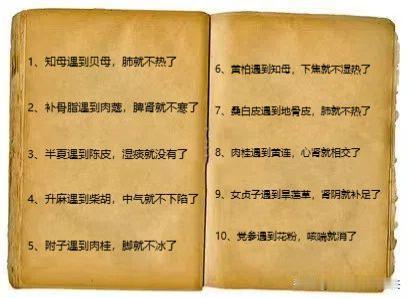 1、知母遇到贝母，肺就不热了
2、补骨脂遇到肉蔻，脾肾就不寒了
3、半夏遇到陈皮，湿痰就没有了
4、升麻遇到柴胡，中气就不下陷了
5、附子遇到肉桂，脚就不冰了
6、黄柏遇到知母，下焦就不湿热了
7、桑白皮遇到地骨皮，肺就不热了
8、肉桂遇到黄连，心肾就相交了
9、女贞子遇到旱莲草，肾阴就补足了
10、党参遇到花粉，咳喘就消了